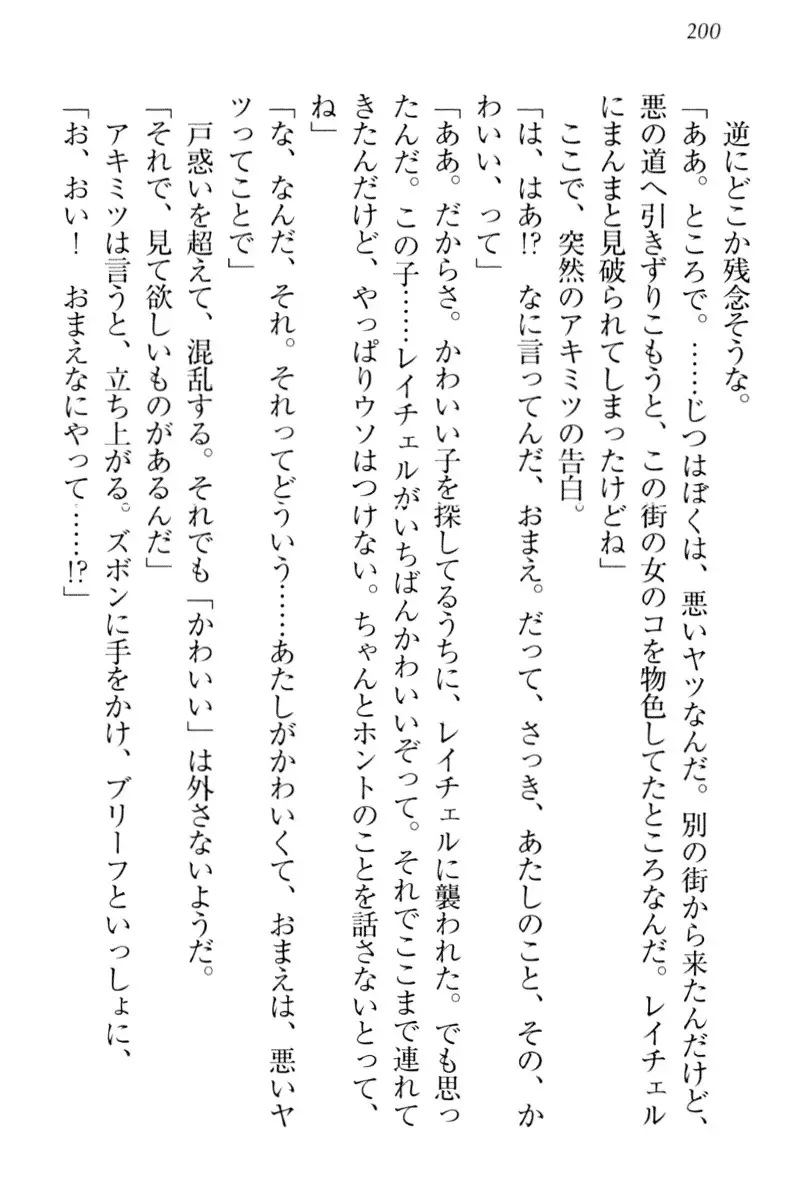 200
逆にどこか残念そうな。
「ああ。ところで。……じつはぼくは、悪いヤツなんだ。別の街から来たんだけど、
悪の道へ引きずりこもうと、この街の女のコを物色してたところなんだ。レイチェル
にまんまと見破られてしまったけどね」
ここで、突然のアキミツの告白。
「は、はあ!?　なに言ってんだ、おまえ。だって、さっき、あたしのこと、その、か
わいい、って」
「ああ。だからさ。かわいい子を探してるうちに、レイチェルに襲われた。でも思っ
たんだ。この子……レイチェルがいちばんかわいいぞって。それでここまで連れて
きたんだけど、やっぱりウソはつけない。ちゃんとホントのことを話さないとって、
ね」
「な、なんだ、それ。それってどういう……あたしがかわいくて、おまえは、悪いヤ
ツってことで」
戸惑いを超えて、混乱する。それでも「かわいい」は外さないようだ。
「それで、見て欲しいものがあるんだ」
アキミツは言うと、立ち上がる。ズボンに手をかけ、ブリーフといっしょに、
「お、おい！　おまえなにやって……!?」